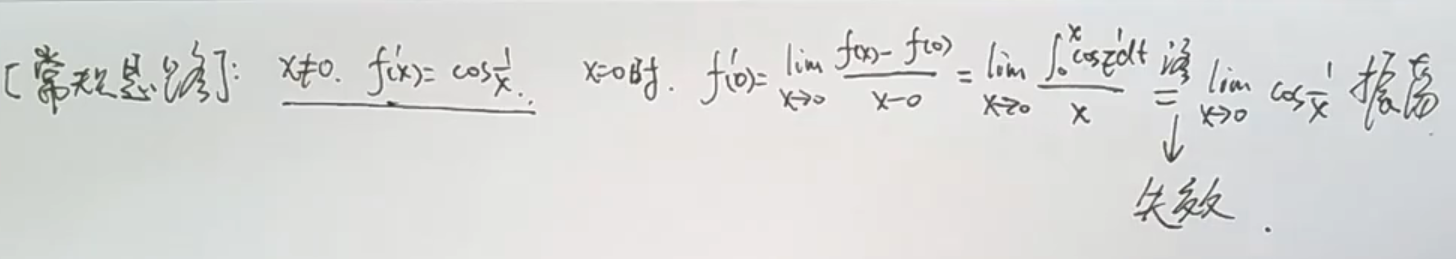 [常规思路]: x≠0. f'(x)= cos 1/x. x=0时. f'(0)= lim x→0 (f(x)-f(0))/(x-0) = lim x→0 (∫₀ˣ cos 1/t dt)/x 洛= lim x→0 cos 1/x 振荡
↓
失效.